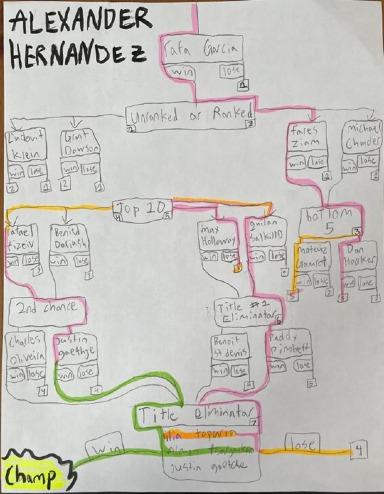 ALEXANDER
HERNANDEZ
Rafa Garcia
win lose
Unranked or Ranked
Ludovit
Klein
win lose
Grant
Dawson
win lose
Fares
Ziam
win lose
Michael
Chandler
win lose
Top 10
bottom
5
Rafael
Fiziev
win lose
Beniel
Dariush
win lose
max
Holloway
win lose
Quillan
Salkilld
win lose
mateusz
Gamrot
win lose
Dan
Hooker
win lose
2nd chance
Title #1
Eliminator
Charles
Oliveira
win lose
4
Justin
gaethje
win lose
4
Benoit
st denis
win lose
Paddy
Pimblett
win lose
5
Title Eliminator
ilia topuria
justin gaethje
win
lose
4
Champ